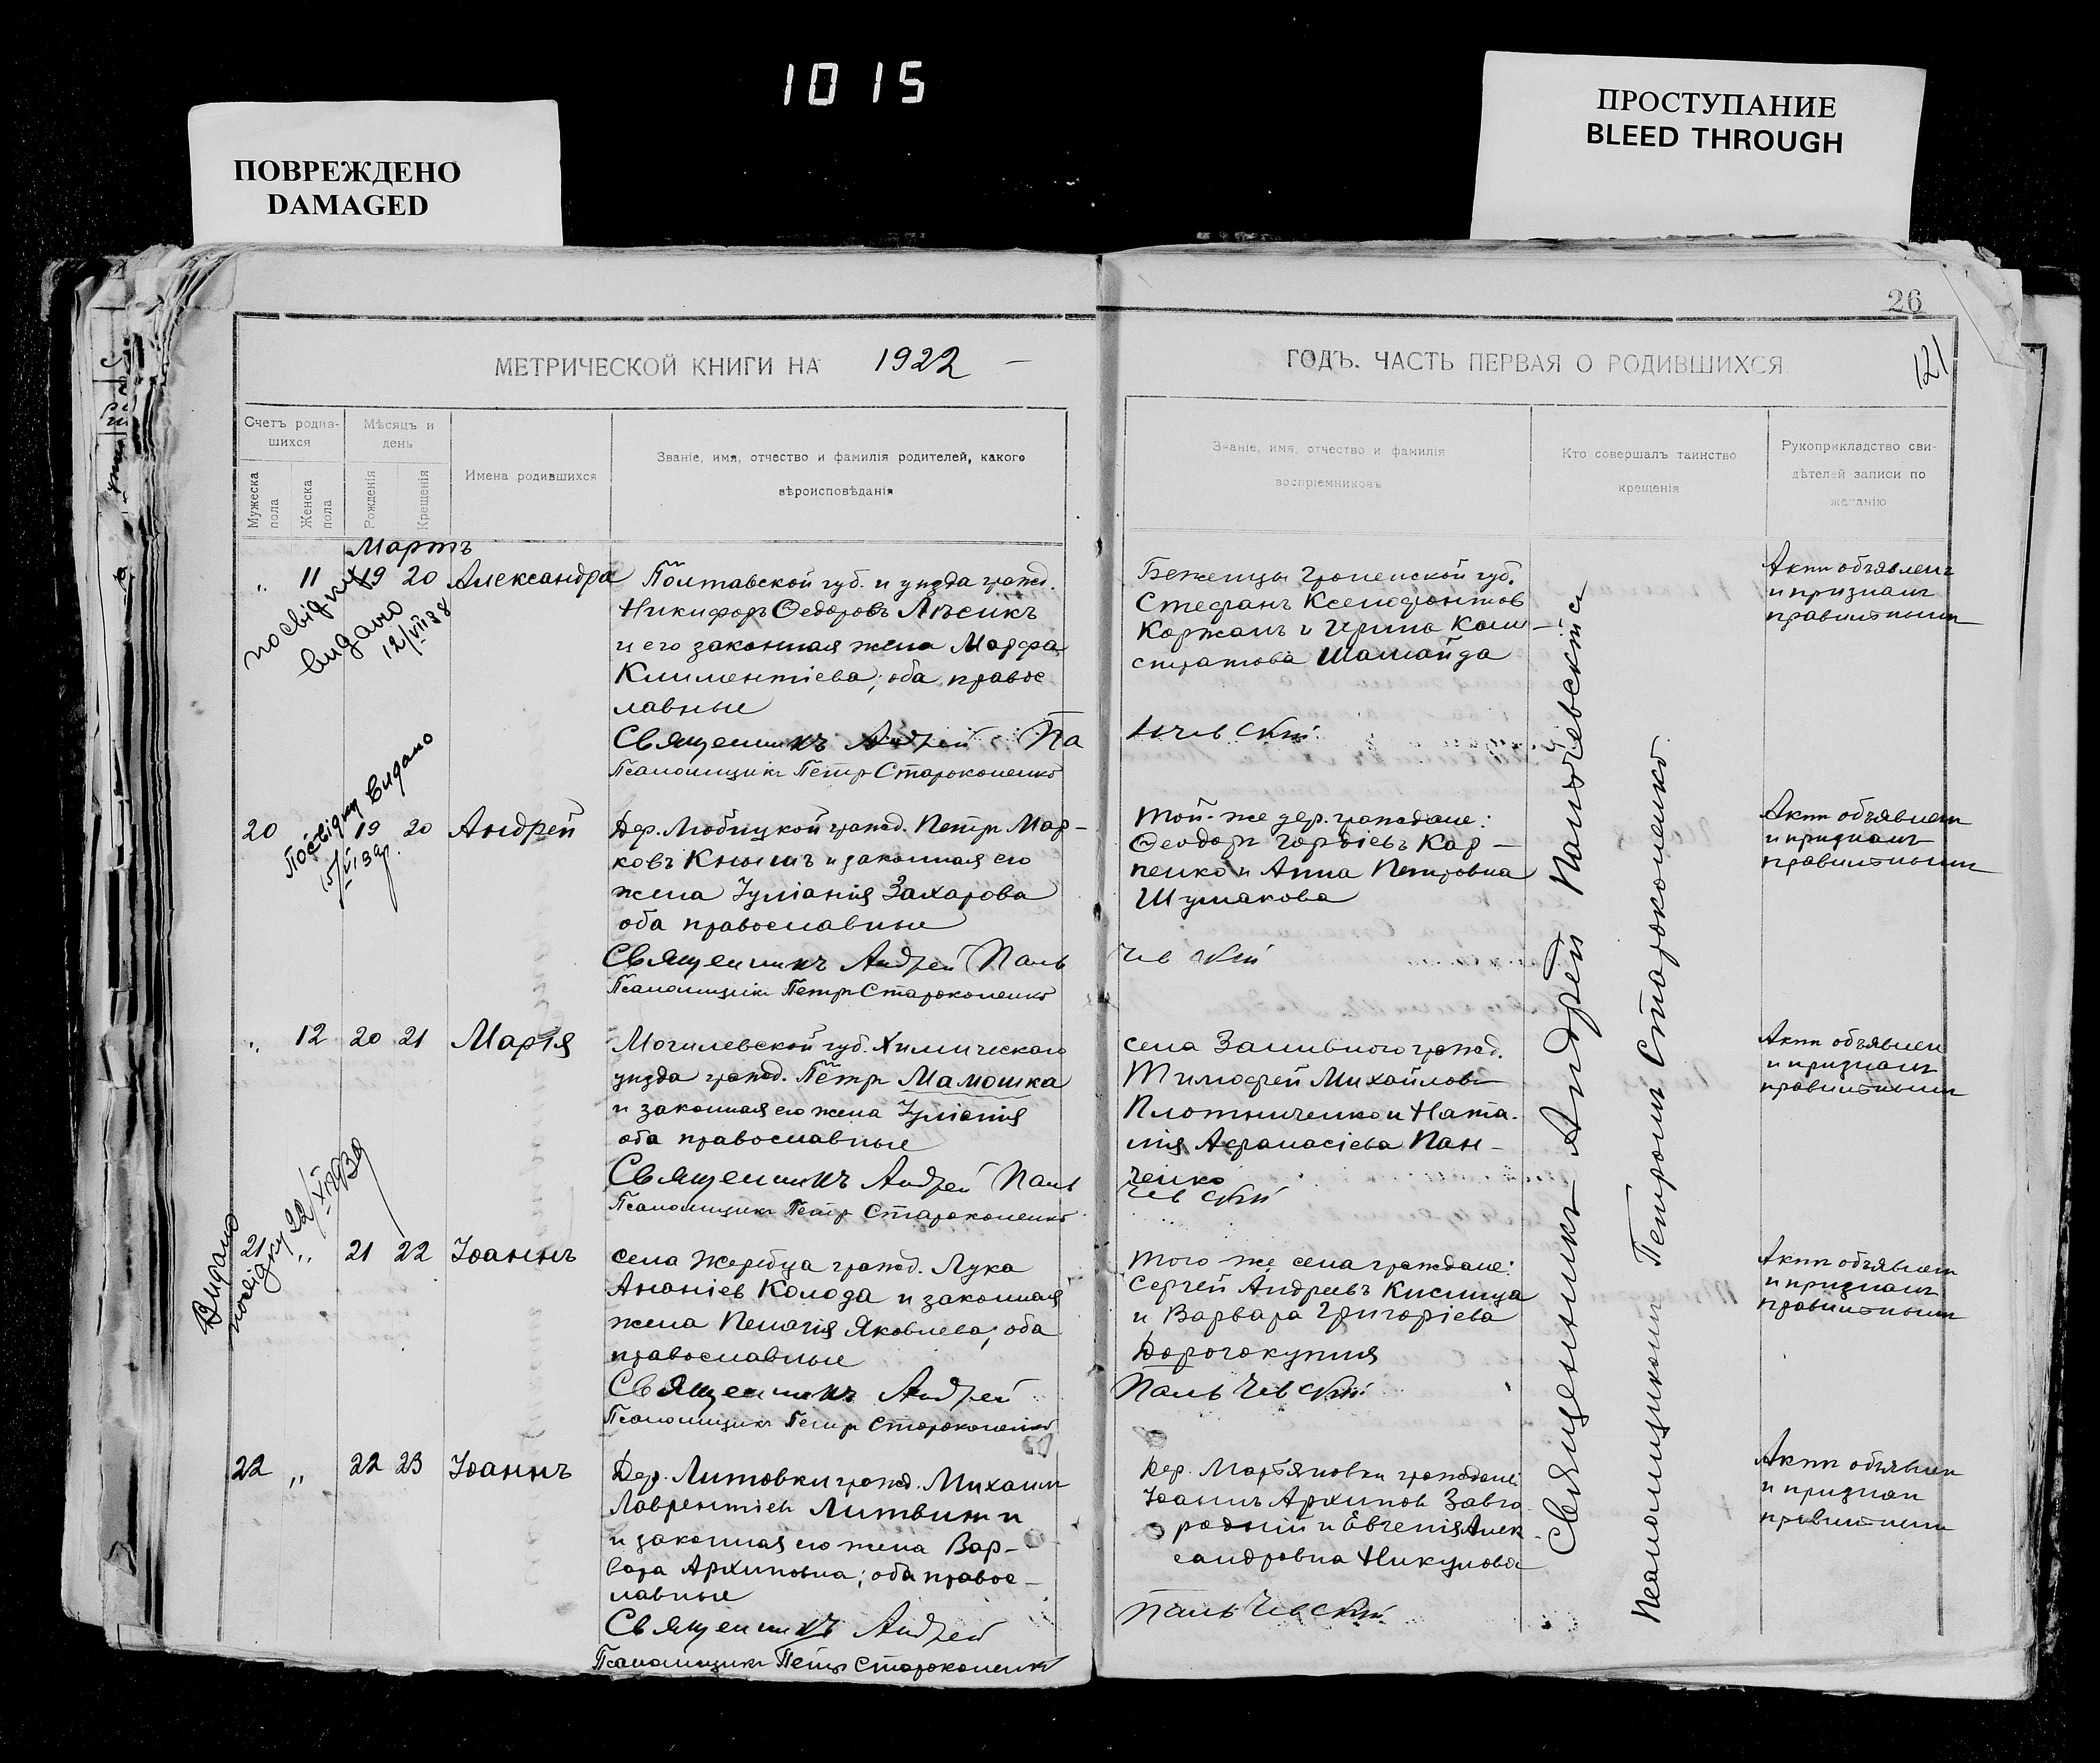 1015
ПОВРЕЖДЕНО
DAMAGED
ПРОСТУПАНИЕ
BLEED THROUGH
26
121
МЕТРИЧЕСКОЙ КНИГИ НА 1922
ГОДЪ. ЧАСТЬ ПЕРВАЯ О РОДИВШИХСЯ
Счетъ родив-
шихся
Мужеска
пола
Женска
пола
Мѣсяцъ и
день
Рожденія
Крещенія
Имена родившихся
Званіе, имя, отчество и фамилія родителей, какого
вѣроисповѣданія
Званіе, имя, отчество и фамилія
воспріемниковъ
Кто совершалъ таинство
крещенія
Рукоприкладство сви-
дѣтелей записи по
желанію
Мартъ
" 11 19 20 Александра
посвідку
видано
12/VII 38
Полтавской губ. и уѣзда гражд.
Никифоръ Ѳедоровъ Лѣсикъ
и его законная жена Марфа
Климентіева; оба правос
лавные
Священникъ Андрей Па
льчевскій
Псаломщикъ Петръ Староконенко
Беженцы Гродненской губ.
Стефанъ Ксенофонтов
Коржанъ и Ирина Кали-
стратова Шамайда
Актъ объявленъ
и признанъ
правильнымъ
20 19 20 Андрей
Посвідку видано
Дер. Любицкой гражд. Петръ Мар-
ковъ Кнышъ и законная его
жена Іуліанія Захарова
оба православные
Священникъ Андрей Паль
чевскій
Псаломщикъ Петръ Староконенко
Той-же дер. граждане:
Ѳеодоръ Гордіевъ Кар-
пенко и Анна Петровна
Шумакова
Актъ объявлен
и признанъ
правильнымъ
" 12 20 21 Марія
Могилевской губ.
уѣзда гражд. Петръ Мамошка
и законная его жена Іуліанія
оба православные
Священникъ Андрей Паль
чевскій
Псаломщикъ Петръ Староконенко
села Заливного гражд.
Тимофей Михайлов
Плотниченко и Ната-
лія Афанасіева Пан-
ченко
Актъ объявлен
и признанъ
правильнымъ
21 " 21 22 Іоаннъ
Видано
посвідку 22/XI 1939
села Жеребца гражд. Лука
Ананіев Колода и законная
жена Пелагія Яковлева; оба
православные
Священникъ Андрей
Пальчевскій
Псаломщикъ Петръ Староконенко
Того же села граждане:
Сергей Андреевъ Кислица
и Варвара Григоріева
Дорогокупля
Актъ объявлен
и признанъ
правильнымъ
22 " 22 23 Іоаннъ
Дер. Литовки гражд. Михаил
Лаврентіев Литвинъ
и законная его жена Вар-
вара Архиповна; оба правос-
лавные
Священникъ Андрей
Пальчевскій
Псаломщикъ Петръ Староконенко
Дер. Мартяновки граждане:
Іоаннъ Архипов Завго
родній и Евгенія Алек-
сандровна Никулова
Актъ объявлен
и признан
правильным
Священникъ Андрей Пальчевскій
Псаломщикомъ Петромъ Староконенко